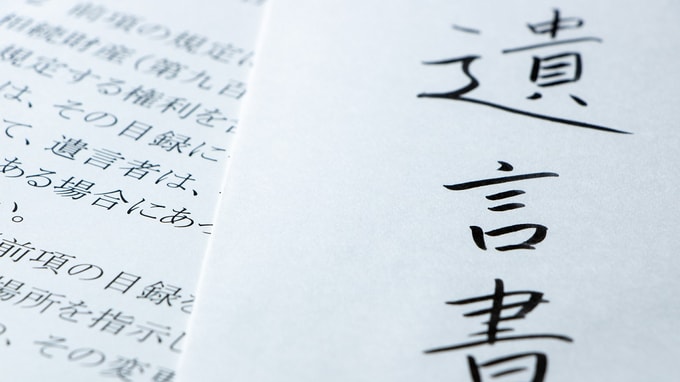 前項の規定に
相続財産(第九百
規定する権利を
は、その目録に
て、遺言者は、
ある場合にあっ
い。
前項の目録を
場所を指示し
その変更
遺言書